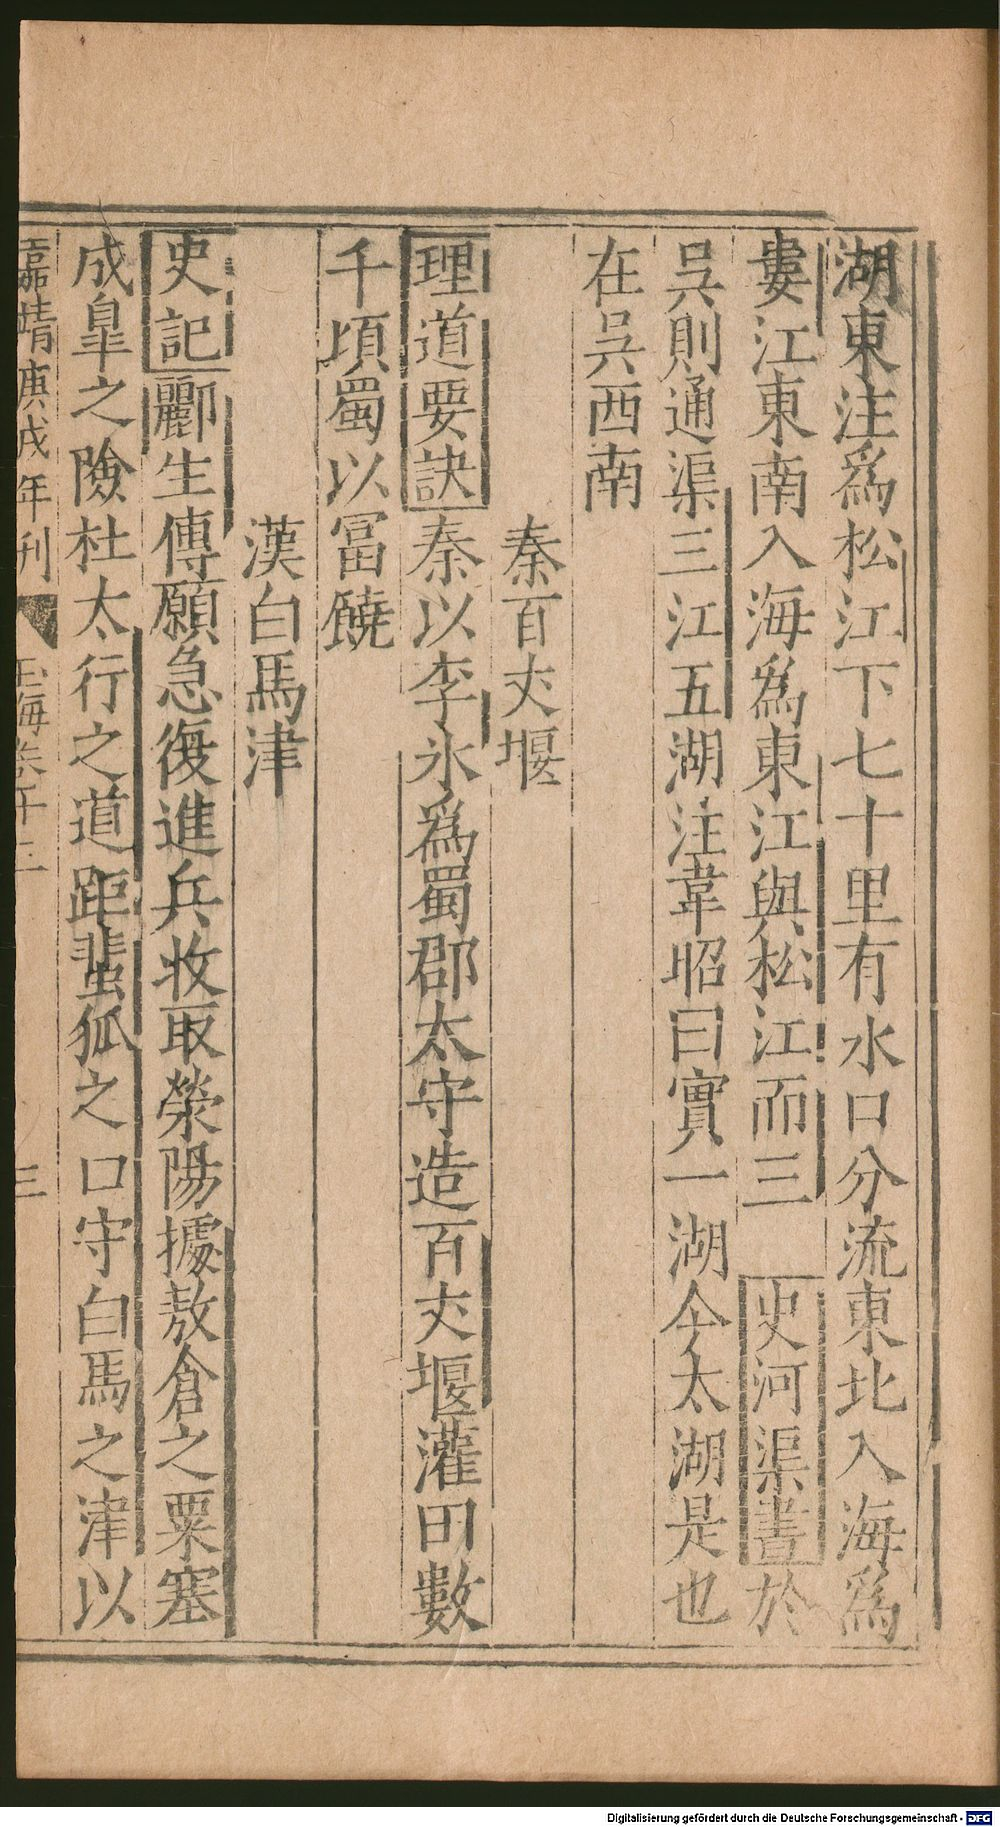 湖東注爲松江下七十里有水口分流東北入海爲
婁江東南入海爲東江與松江而三　史河渠書於
吳則通渠三江五湖注韋昭曰實一湖今太湖是也
在吳西南
秦百丈堰
理道要訣秦以李氷爲蜀郡太守造百丈堰灌田數
千頃蜀以冨饒
漢白馬津
史記酈生傳願急復進兵收取滎陽據敖倉之粟塞
成臯之險杜太行之道距蜚狐之口守白馬之津以
嘉靖庚戌年刋　玉海卷二十三　三
Digitalisierung gefördert durch die Deutsche Forschungsgemeinschaft - DFG